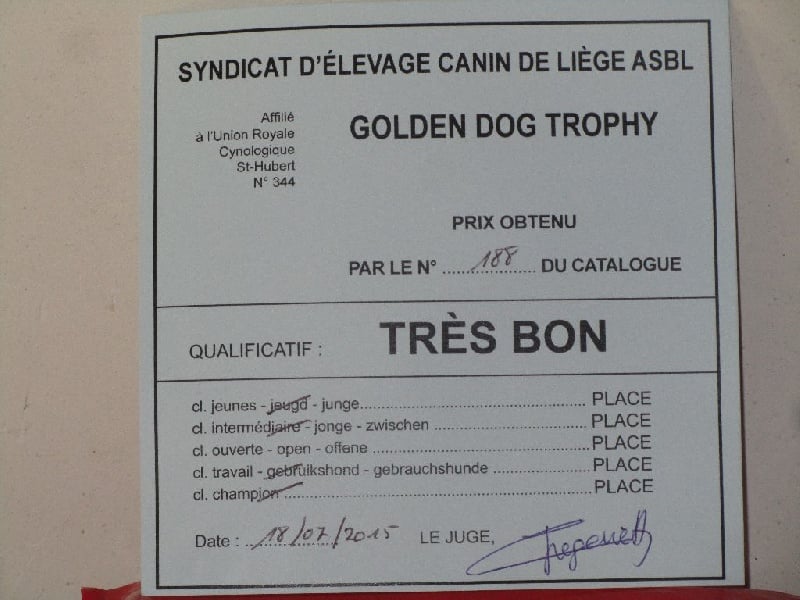 SYNDICAT D'ÉLEVAGE CANIN DE LIÈGE ASBL
Affilié
à l'Union Royale
Cynologique
St-Hubert
N° 344
GOLDEN DOG TROPHY
PRIX OBTENU
PAR LE N° 188 DU CATALOGUE
QUALIFICATIF : TRÈS BON
cl. jeunes - jeugd - junge PLACE
cl. intermédiaire - jonge - zwischen PLACE
cl. ouverte - open - offene PLACE
cl. travail - gebruikshond - gebrauchshunde PLACE
cl. champion PLACE
Date : 18/07/2015 LE JUGE,